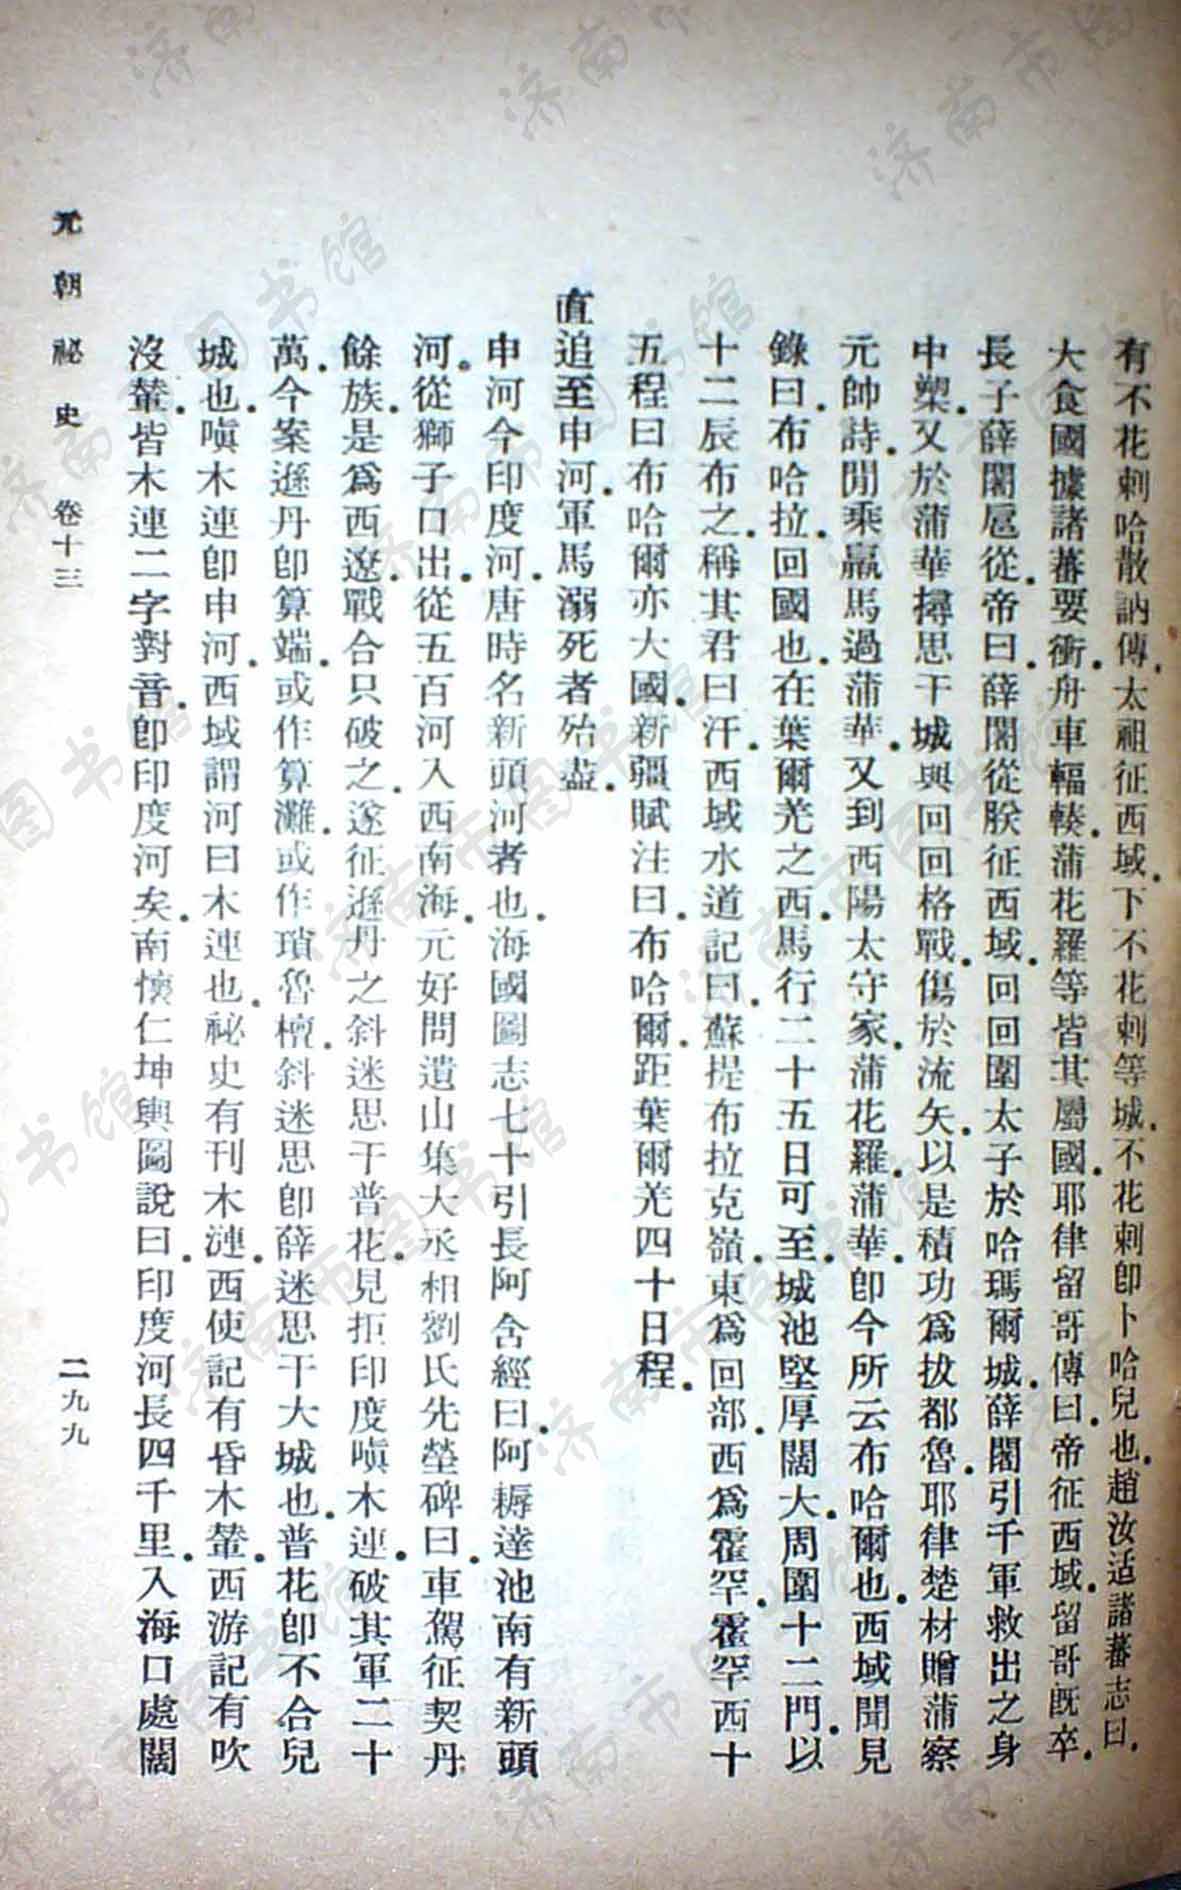 有不花剌哈散訥傳.太祖征西域.下不花剌等城.不花剌卽卜哈兒也.趙汝适諸蕃志曰.
大食國據諸蕃要衝.舟車輻輳.蒲花羅等皆其屬國.耶律留哥傳曰.帝征西域.留哥旣卒.
長子薛闍扈從.帝曰.薛闍從朕征西域.回回圍太子於哈瑪爾城.薛闍引千軍救出之身
中槊.又於蒲華撏思干城與回回格戰.傷於流矢.以是積功爲拔都魯.耶律楚材贈蒲察
元帥詩.閒乘羸馬過蒲華.又到西陽太守家.蒲花羅.蒲華.卽今所云布哈爾也.西域聞見
錄曰.布哈拉.回國也.在葉爾羌之西.馬行二十五日可至城池堅厚闊大.周圍十二門.以
十二辰布之.稱其君曰汗.西域水道記曰.蘇提布拉克嶺.東爲回部.西爲霍罕.霍罕西十
五程曰布哈爾亦大國.新疆賦注曰.布哈爾.距葉爾羌四十日程.
直追至申河.軍馬溺死者殆盡.
申河今印度河.唐時名新頭河者也.海國圖志七十引長阿含經曰.阿耨達池南有新頭
河.從獅子口出.從五百河入西南海.元好問遺山集大丞相劉氏先塋碑曰.車駕征契丹
餘族.是爲西遼.戰合只破之.遂征遜丹之斜迷思干普花.見拒印度嗔木連.破其軍二十
萬.今案遜丹卽算端.或作算灘.或作瑣魯檀.斜迷思卽薛迷思干大城也.普花卽不合兒
城也.嗔木連卽申河.西域謂河曰木連也.祕史有刊木漣.西使記有昏木輦.西游記有吹
沒輦.皆木連二字對音.卽印度河矣.南懷仁坤輿圖說曰.印度河長四千里.入海口處闊
元朝祕史 卷十三 二九九
济南市图书馆